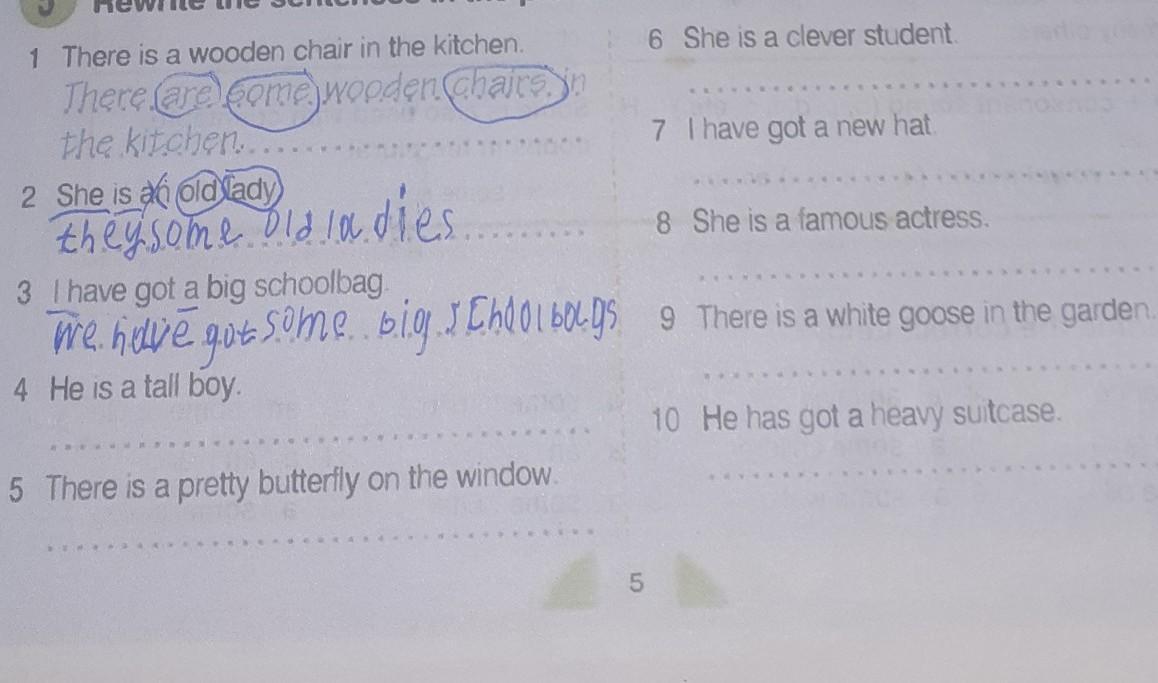 1 There is a wooden chair in the kitchen.
There are some wooden chairs in
the kitchen.
2 She is an old lady
they some old ladies
3 I have got a big schoolbag.
we have got some big schoolbags
4 He is a tall boy.
5 There is a pretty butterfly on the window.
6 She is a clever student.
7 I have got a new hat.
8 She is a famous actress.
9 There is a white goose in the garden.
10 He has got a heavy suitcase.
5